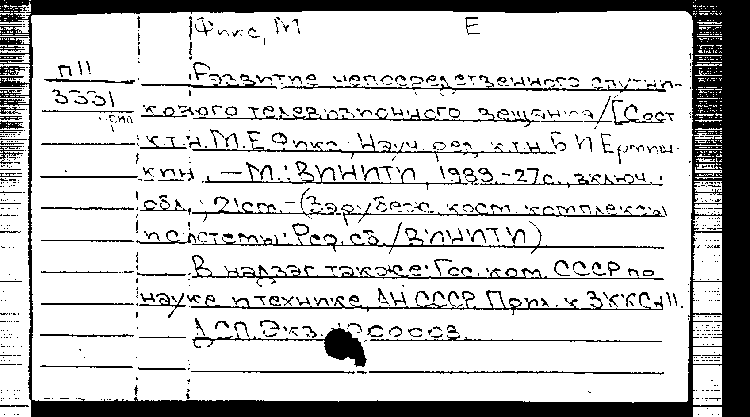 Фикс, М Е
П11
3331
Развитие непосредственного спутни-
кового телевизионного вещания/[Сост
к.т.н. М.Е.Фикс; Науч. ред. к.т.н. Б И Ерпы-
кин, – М.: ВИНИТИ, 1989.-27с., включ.:
обл.; 21см.-(Зарубеж. косм. комплексы
и системы: Реф. сб./ВИНИТИ)
В надзаг также: Гос. ком. СССР по
науке и технике, АН СССР. Прил. к ЗККС №11.
ДСП. Экз.